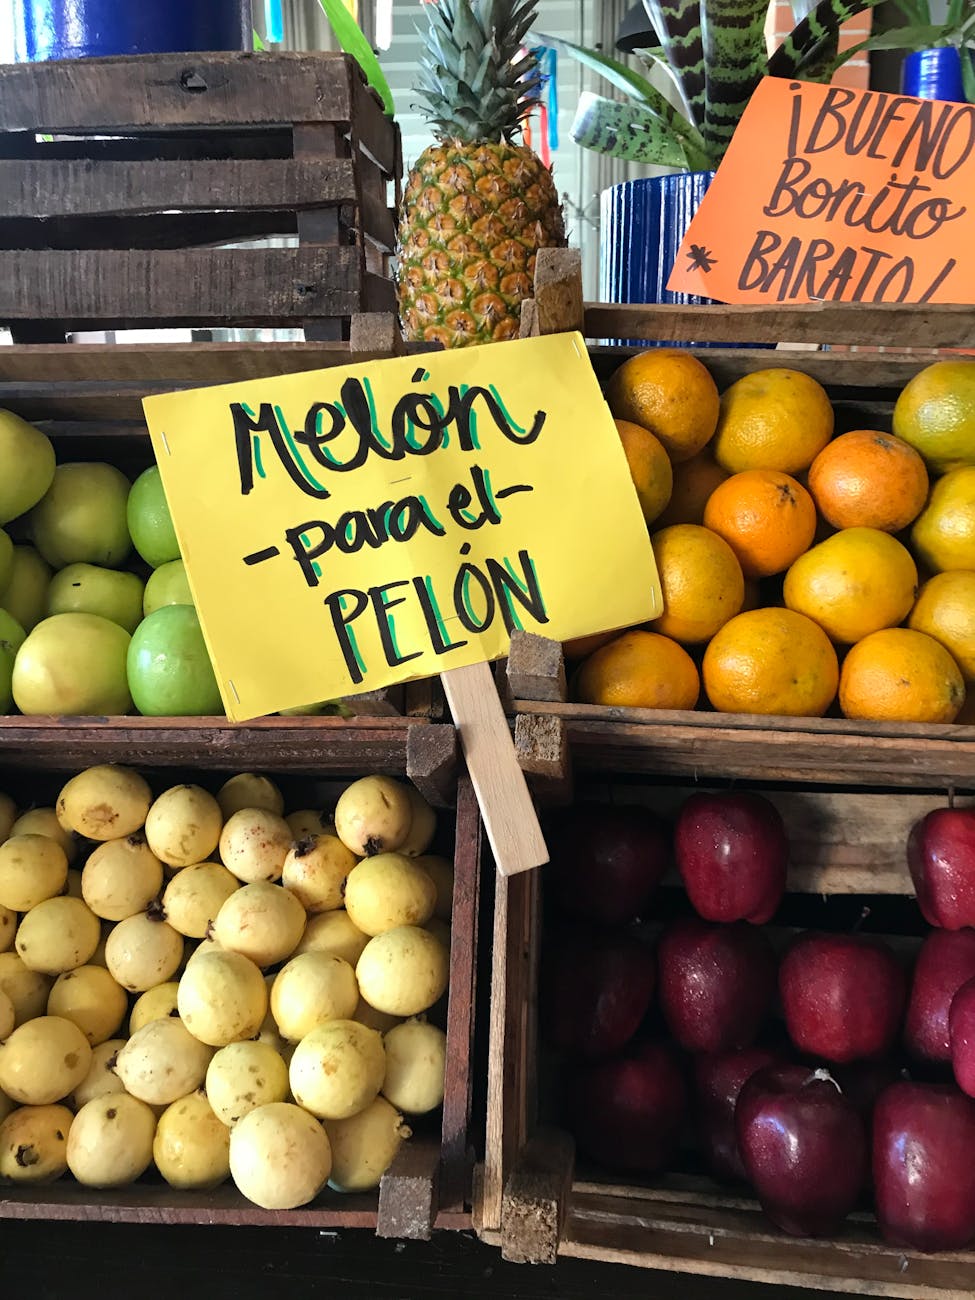 Melón
-para el-
PELÓN
¡BUENO
Bonito
* BARATO!